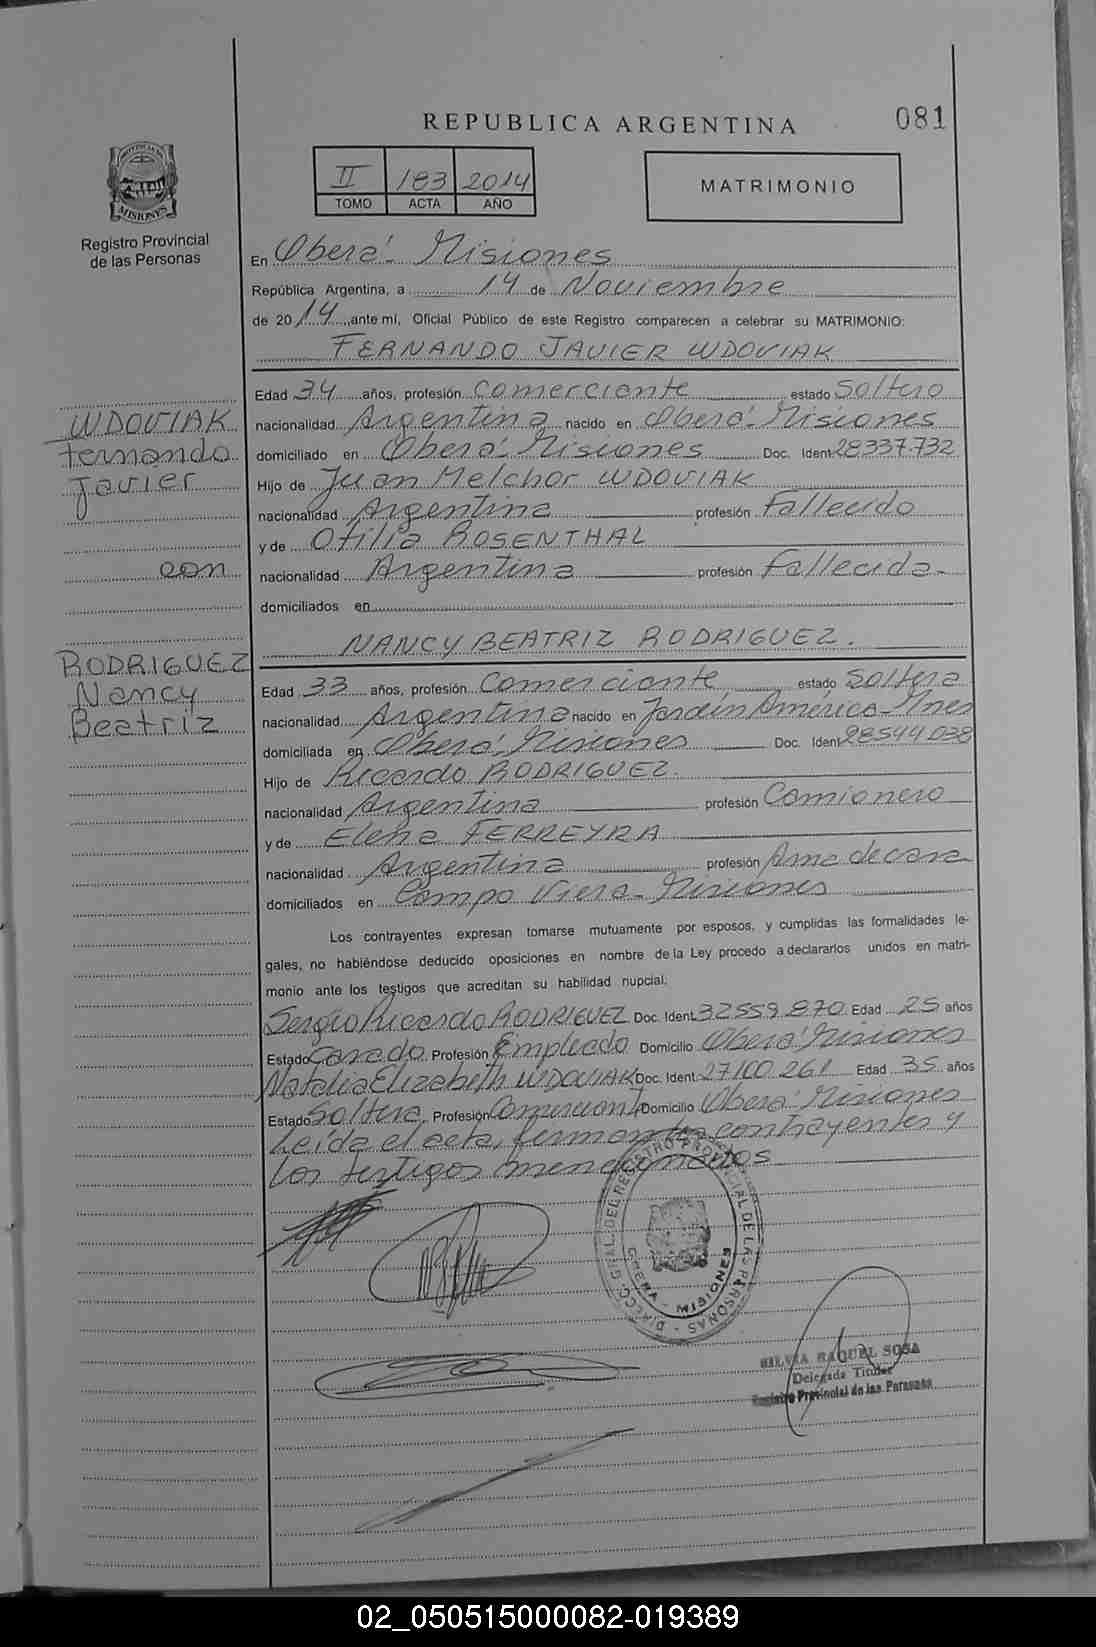 REPUBLICA ARGENTINA
081
PROVINCIA DE
MISIONES
Registro Provincial
de las Personas
II 183 2014
TOMO ACTA AÑO
MATRIMONIO
En Oberá - Misiones
República Argentina, a 14 de Noviembre
de 2014, ante mí, Oficial Público de este Registro comparecen a celebrar su MATRIMONIO:
FERNANDO JAVIER WDOVIAK
Edad 34 años, profesión Comerciante estado Soltero
nacionalidad Argentina nacido en Oberá - Misiones
domiciliado en Oberá - Misiones Doc. Ident 28337.732
Hijo de Juan Melchor WDOVIAK
nacionalidad Argentina profesión Fallecido
y de Otilia ROSENTHAL
nacionalidad Argentina profesión Fallecida -
domiciliados en
WDOVIAK
Fernando
Javier
con
RODRIGUEZ
Nancy
Beatriz
NANCY BEATRIZ RODRIGUEZ.
Edad 33 años, profesión Comerciante estado Soltera
nacionalidad Argentina nacido en Jardín América - Mnes
domiciliada en Oberá - Misiones Doc. Ident 28544.038
Hijo de Ricardo RODRIGUEZ.
nacionalidad Argentina profesión Camionero
y de Elena FERREYRA
nacionalidad Argentina profesión Ama de casa
domiciliados en Campo Viera - Misiones
Los contrayentes expresan tomarse mutuamente por esposos, y cumplidas las formalidades le-
gales, no habiéndose deducido oposiciones en nombre de la Ley procedo a declararlos unidos en matri-
monio ante los testigos que acreditan su habilidad nupcial:
Sergio Ricardo RODRIGUEZ Doc. Ident. 32559.870 Edad 25 años
Estado Casado Profesión Empleado Domicilio Oberá - Misiones
Natalia Elizabeth WDOVIAK Doc. Ident. 27100.261 Edad 35 años
Estado Soltera Profesión Comerciante Domicilio Oberá - Misiones
Leída el acta, firman los contrayentes y
los testigos mencionados
DIRECC. GRAL. DEL REGISTRO PROVINCIAL DE LAS PERSONAS -
OBERA - MISIONES
SILVIA RAQUEL SOSA
Delegada Titular
Registro Provincial de las Personas
02_050515000082-019389